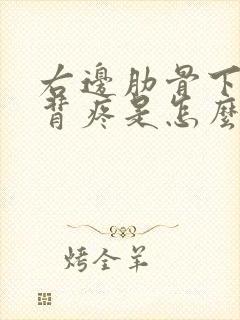 右邊肋骨下
背疼是怎麼
烤全羊